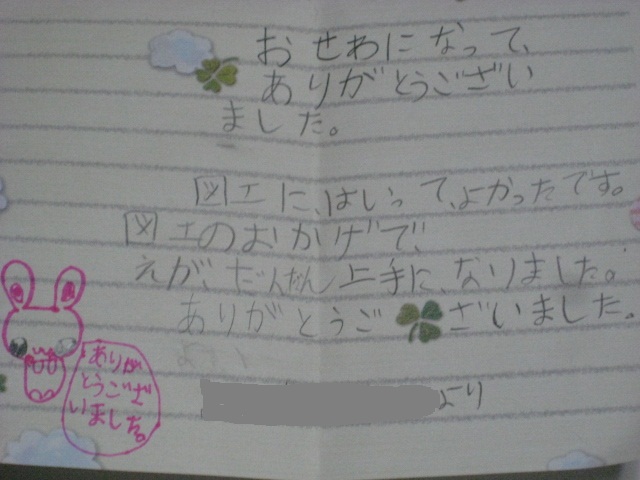 おせわになって、
ありがとうござい
ました。
図工に、はいって、よかったです。
図工のおかげで、
えが、だんだん上手に、なりました。
ありがとうございました。
より
ありが
とうござ
いました。